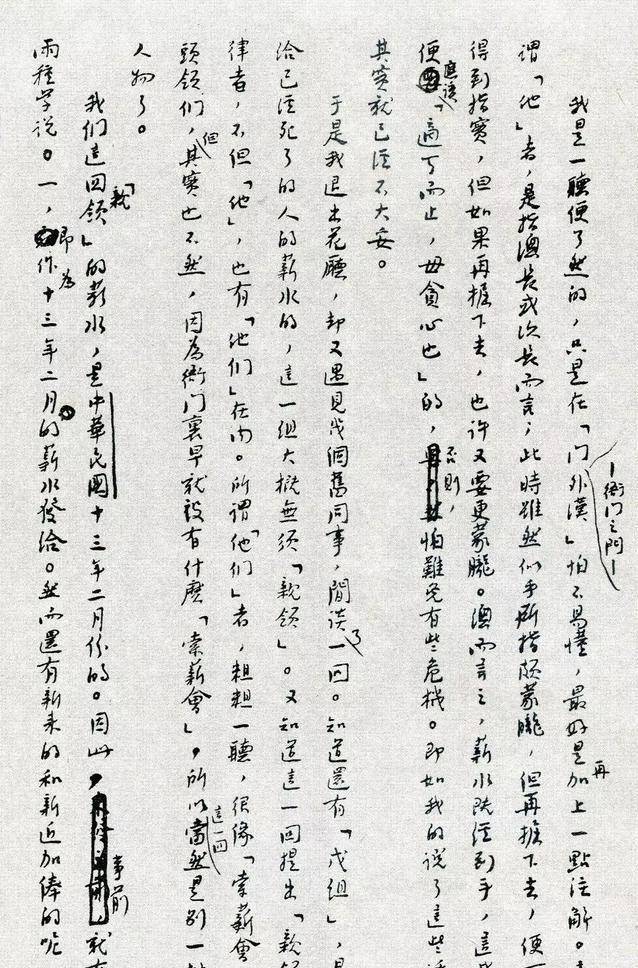 我是一聽便了然的,只是在「門外漢」—衙門之門—怕不易懂,最好是再加上一點注解。
謂「他」者,是指總長或次長而言,此時雖然似乎所指頗蒙朧,但再掘下去,便
得到指實,但如果再掘下去,也許又要更蒙朧。總而言之,薪水既經到手,這
便應該「適可而止,毋貪心也」的,否則,怕難免有些危機。即如我的說了這些
其實就已經不大妥。
于是我退出花廳,却又遇見幾個舊同事,閒談了一回。知道還有「戊組」,是
給已經死了的人的薪水的,這一組大概無須「親領」。又知道這一回提出「親領
律者,不但「他」,也有「他們」在內。所謂「他們」者,粗粗一聽,很像「索薪會
頭領們,但其實也不然,因為衙門裏早就沒有什麼「索薪會」,所以這一回當然是別一
人物了。
我们這回「親領」的薪水,是中華民國十三年二月份的。因此,事前就有
兩種学说。一,即作為十三年二月的薪水發給。然而還有新来的和新近加俸的呢